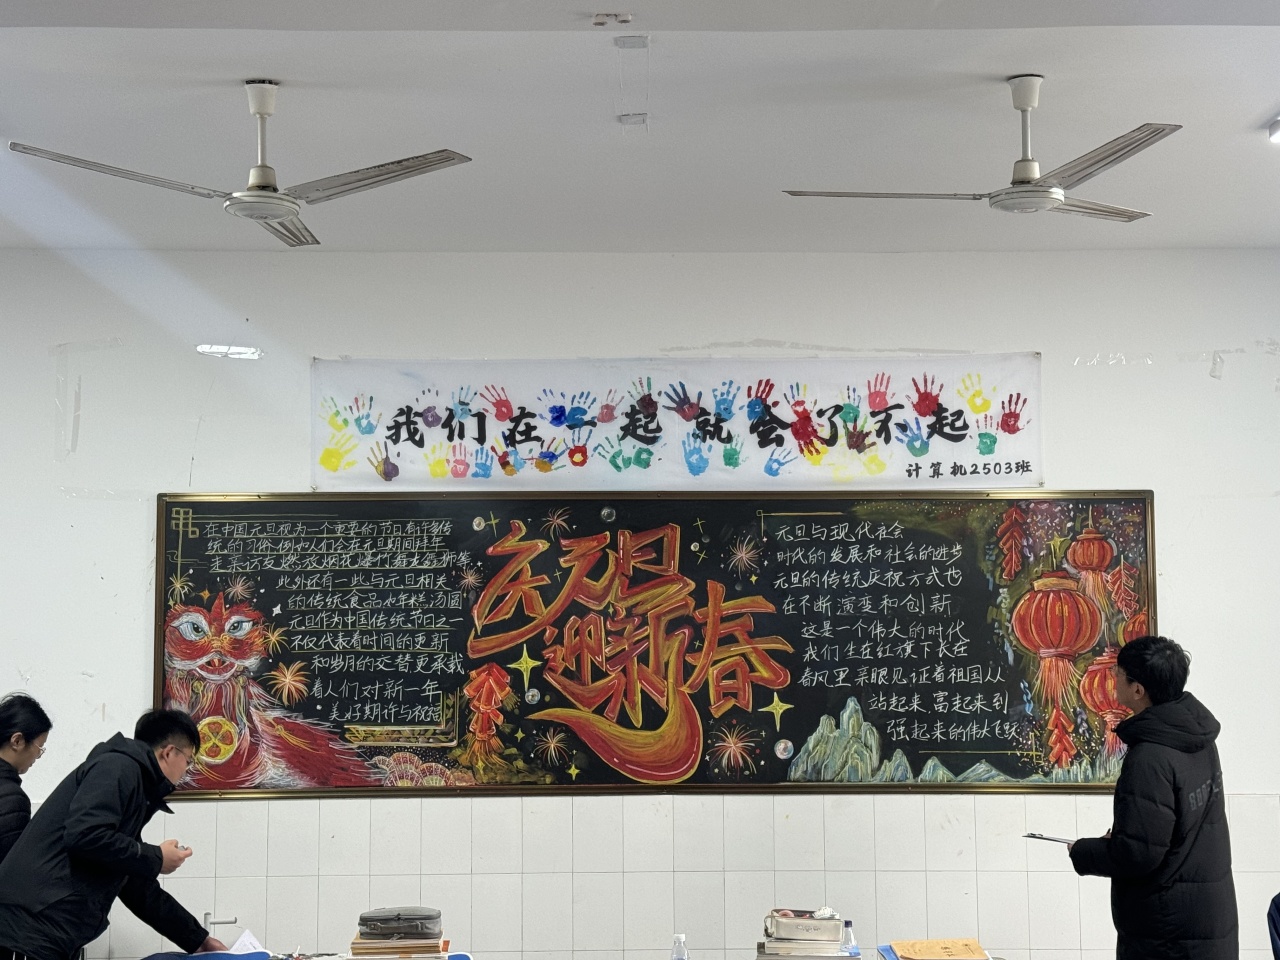 我们在一起就会了不起
计算机2503班
在中国元旦视为一个重要的节日有许多传
统的习俗.例如人们会在元旦期间拜年
走亲访友燃放烟花爆竹舞龙舞狮等
此外还有一些与元旦相关
的传统食品如年糕汤圆
元旦作为中国传统节日之一
不仅代表着时间的更新
和岁月的交替更承载
着人们对新一年
美好期许与祝福
庆元旦
迎新春
元旦与现代社会
时代的发展和社会的进步
元旦的传统庆祝方式也
在不断演变和创新
这是一个伟大的时代
我们生在红旗下长在
春风里亲眼见证着祖国从
站起来、富起来到
强起来的伟大飞跃